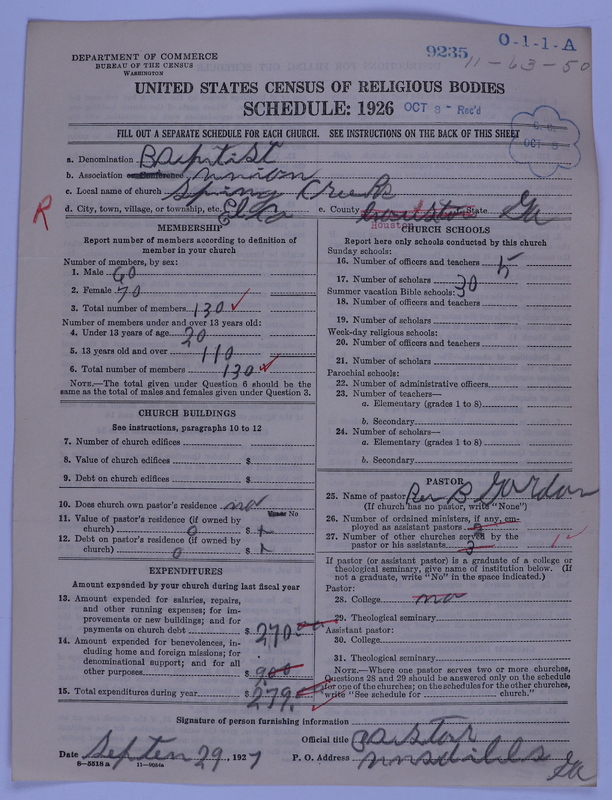 DEPARTMENT OF COMMERCE
BUREAU OF THE CENSUS
WASHINGTON
9235
O-1-1-A
11-63-50
UNITED STATES CENSUS OF RELIGIOUS BODIES
SCHEDULE: 1926
OCT 8 - Rec'd
FILL OUT A SEPARATE SCHEDULE FOR EACH CHURCH. SEE INSTRUCTIONS ON THE BACK OF THIS SHEET
a. Denomination Baptist
b. Association or Conference, union
c. Local name of church Spring Creek
R
d. City, town, village, or township, etc. Elko e. County Houston State Ga
Houston
MEMBERSHIP
Report number of members according to definition of
member in your church
Number of members, by sex:
1. Male 60
2. Female 70
3. Total number of members 130
Number of members under and over 13 years old:
4. Under 13 years of age 20
5. 13 years old and over 110
6. Total number of members 130
NOTE.—The total given under Question 6 should be the
same as the total of males and females given under Question 3.
CHURCH BUILDINGS
See instructions, paragraphs 10 to 12
7. Number of church edifices
8. Value of church edifices $
9. Debt on church edifices $
10. Does church own pastor's residence no
No
11. Value of pastor's residence (if owned by
church) 0 $
12. Debt on pastor's residence (if owned by
church) 0 $
EXPENDITURES
Amount expended by your church during last fiscal year
13. Amount expended for salaries, repairs,
and other running expenses; for im-
provements or new buildings; and for
payments on church debt $ 270
14. Amount expended for benevolences, in-
cluding home and foreign missions; for
denominational support; and for all
other purposes $ 900
15. Total expenditures during year $ 279
CHURCH SCHOOLS
Report here only schools conducted by this church
Sunday schools:
16. Number of officers and teachers 5
17. Number of scholars 30
Summer vacation Bible schools:
18. Number of officers and teachers
19. Number of scholars
Week-day religious schools:
20. Number of officers and teachers
21. Number of scholars
Parochial schools:
22. Number of administrative officers
23. Number of teachers—
a. Elementary (grades 1 to 8)
b. Secondary
24. Number of scholars—
a. Elementary (grades 1 to 8)
b. Secondary
PASTOR
25. Name of pastor Rev B Gordon
(If church has no pastor, write "None")
26. Number of ordained ministers, if any, em-
ployed as assistant pastors 2
27. Number of other churches served by the
pastor or his assistants 2
1
If pastor (or assistant pastor) is a graduate of a college or
theological seminary, give name of institution below. (If
not a graduate, write "No" in the space indicated.)
Pastor:
28. College no
29. Theological seminary
Assistant pastor:
30. College
31. Theological seminary
NOTE.—Where one pastor serves two or more churches,
Questions 28 and 29 should be answered only on the schedule
for one of the churches; on the schedules for the other churches,
write "See schedule for church."
Signature of person furnishing information
Official title Pastor
Date Septem 29, 1927 P. O. Address Ga
8—5518 a 11—9034a